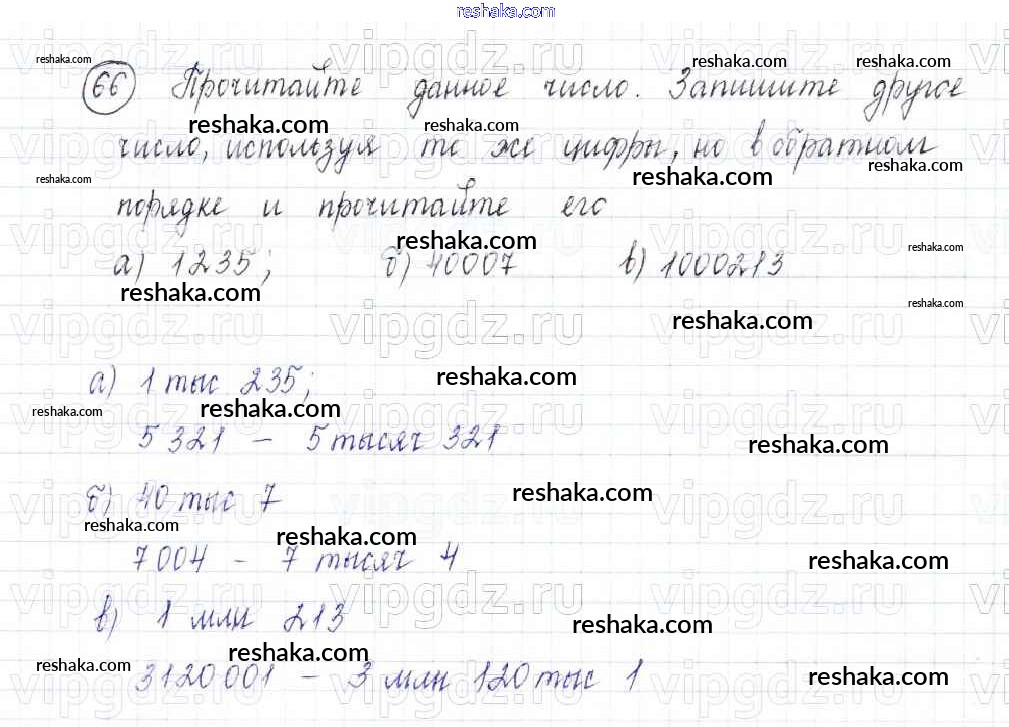 reshaka.com
66 Прочитайте данное число. Запишите другое
число, используя те же цифры, но в обратном
порядке и прочитайте его
а) 1235; б) 40007 в) 1000213
а) 1 тыс 235;
5 321 - 5 тысяч 321
б) 40 тыс 7
7 004 - 7 тысяч 4
в) 1 млн 213
3120 001 - 3 млн 120 тыс 1